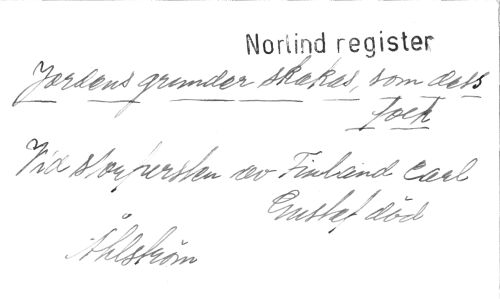 Norlind register
Jordens grunder skakas, som dess
fock
Vid storfursten av Finland Carl
Gustaf död
Åhlström